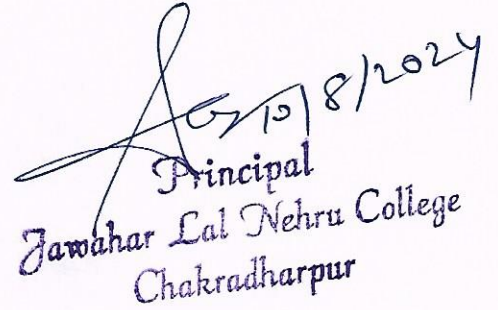 10/8/2024
Principal
Jawahar Lal Nehru College
Chakradharpur